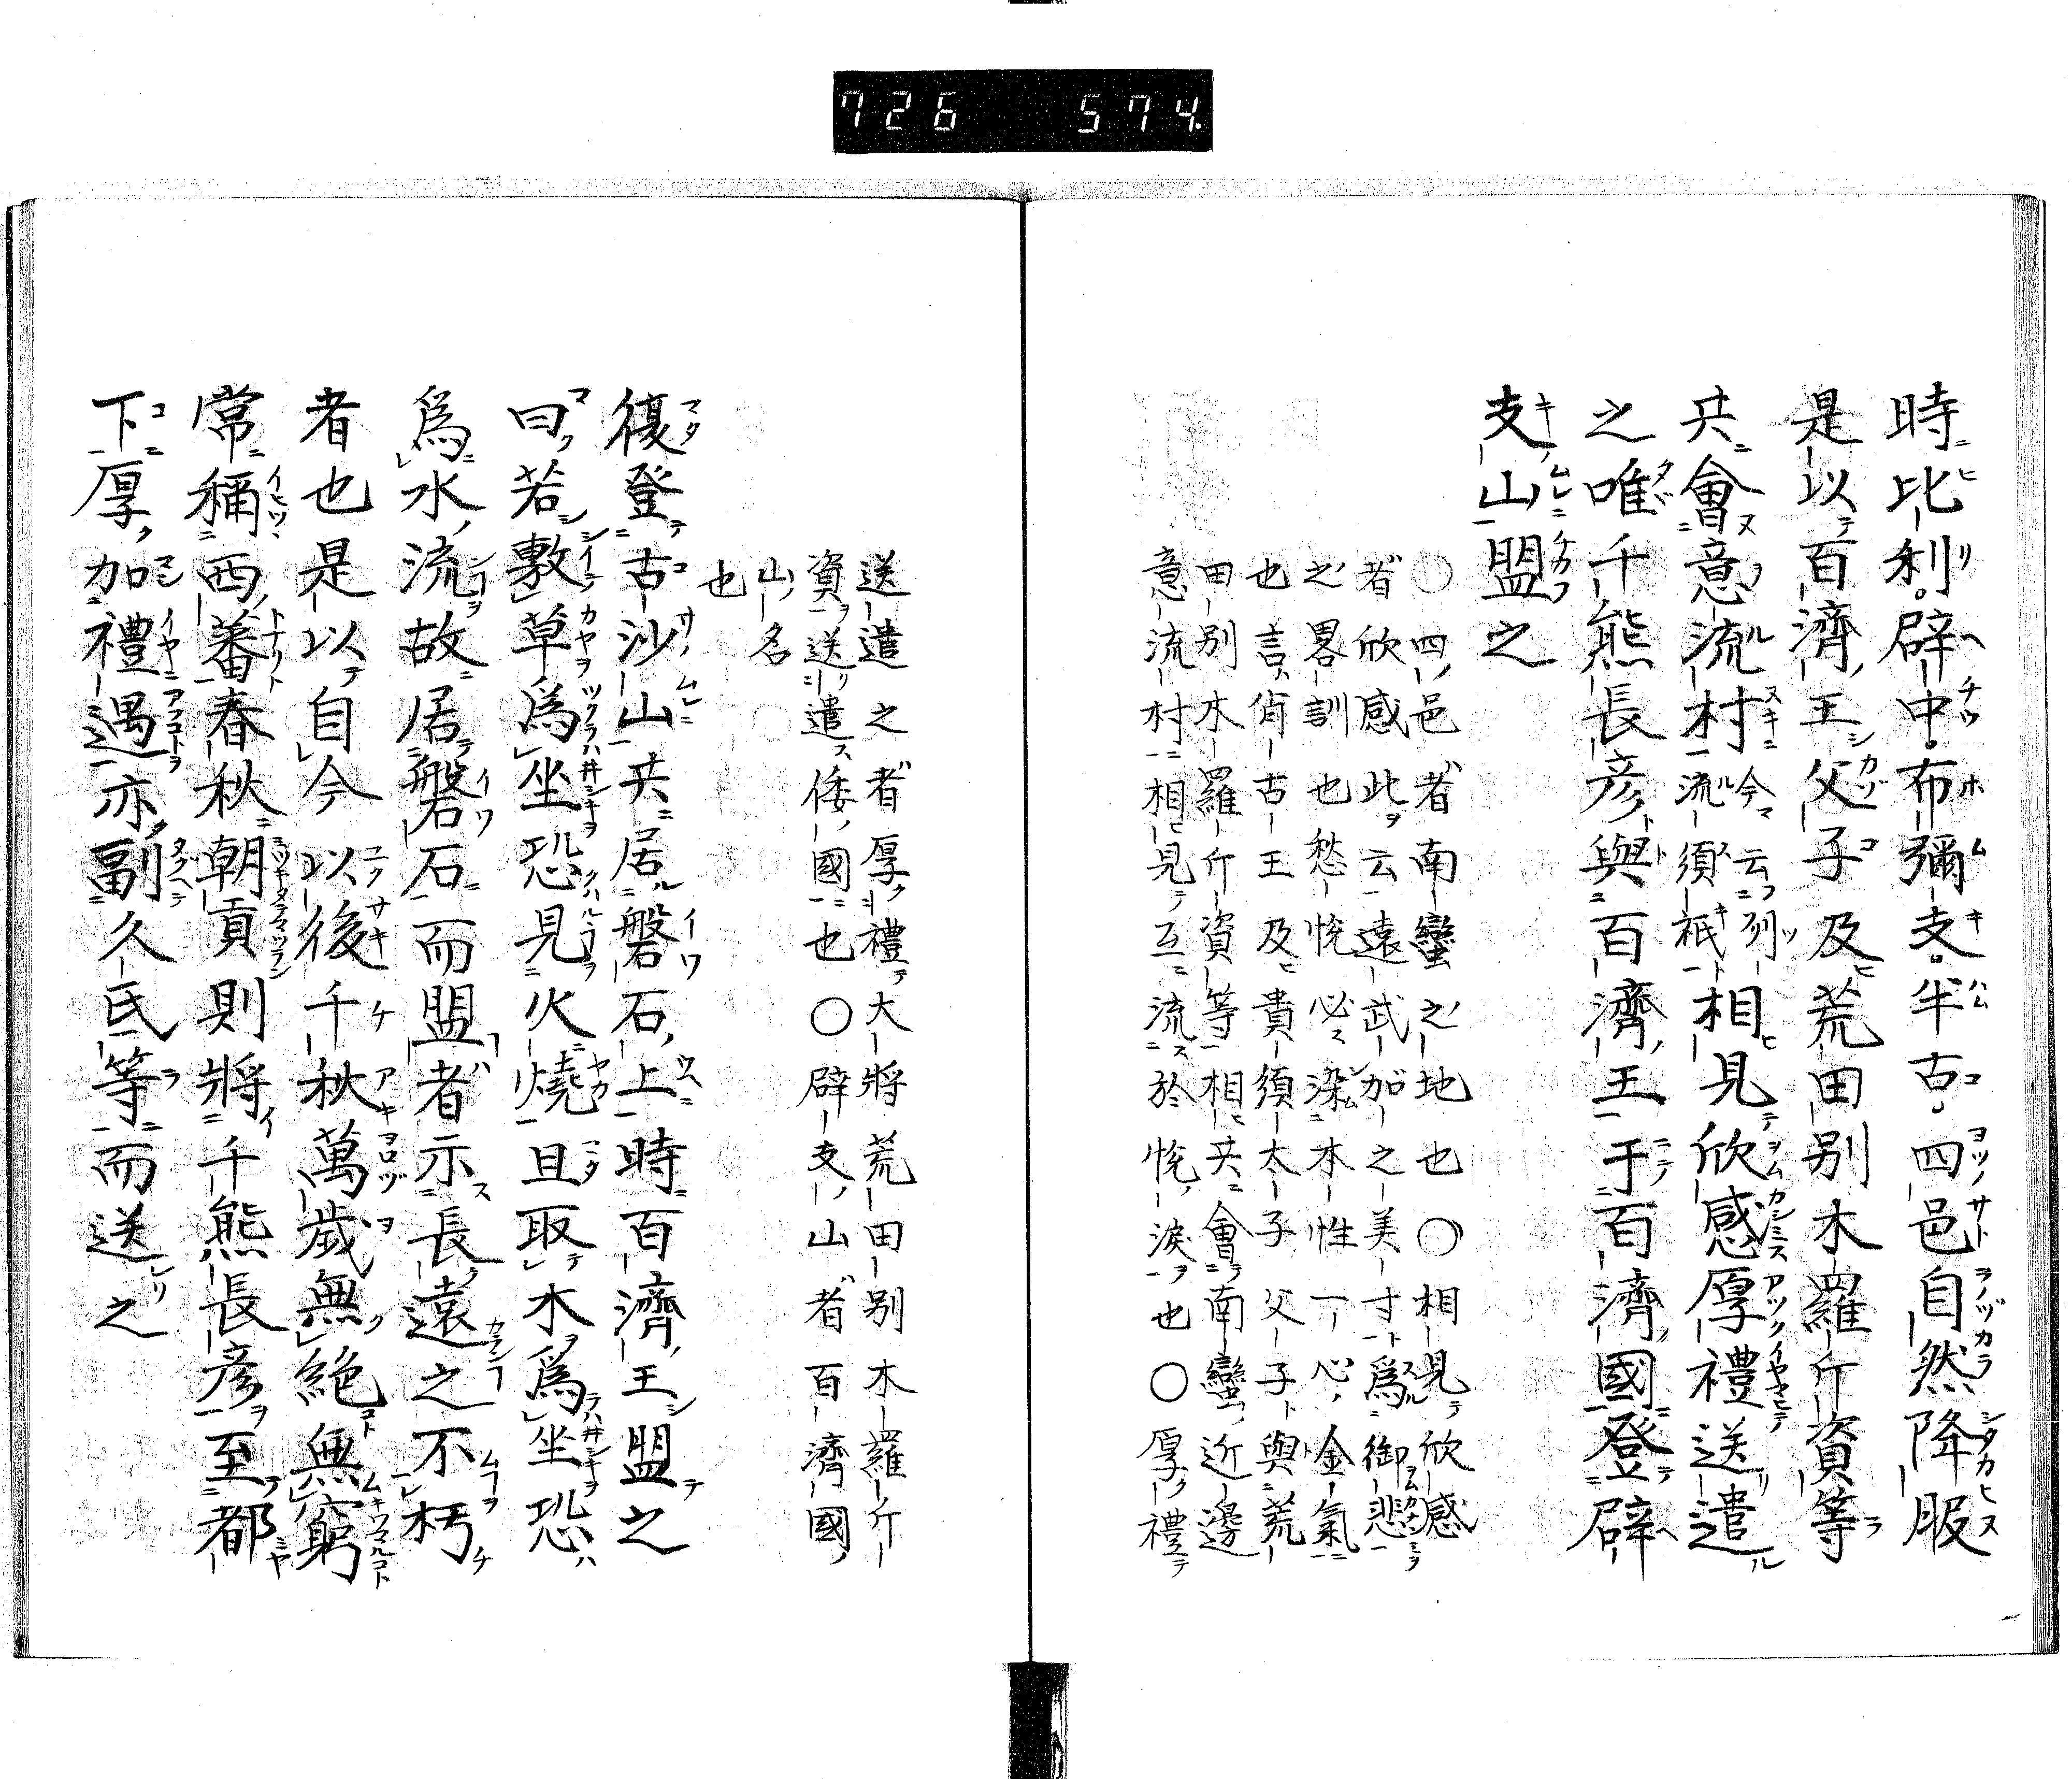 726 574
時比利辟中布彌支半古四邑自然降服
是以百濟王父子及荒田別木羅斤資等
共會意流村今云列流須祇相見欣感厚禮送遣
之唯千熊長彥與百濟王于百濟國登辟
支山盟之
○四邑者南蠻之地也○相見欣感
者欣感此云遠武加之美寸為御悲
之畧訓也愁悅必染本性一心金氣
也言肖古王及貴須太子父子與荒
田別木羅斤資等相共會南蠻近邊
意流村相見互流於悅淚也○厚禮
送遣之者厚禮大將荒田別木羅斤
資送遣倭國也○辟支山者百濟國
山名
也
復登古沙山共居磐石上時百濟王盟之
曰若敷草爲坐恐見火燒且取木爲坐恐
爲水流故居磐石而盟者示長遠之不朽
者也是以自今以後千秋萬歲無絕無窮
常稱西蕃春秋朝貢則將千熊長彥至都
下厚加禮遇亦副久氐等而送之